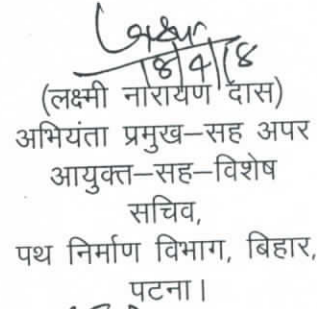 18/4/18
(लक्ष्मी नारायण दास)
अभियंता प्रमुख–सह अपर
आयुक्त–सह–विशेष
सचिव,
पथ निर्माण विभाग, बिहार,
पटना।